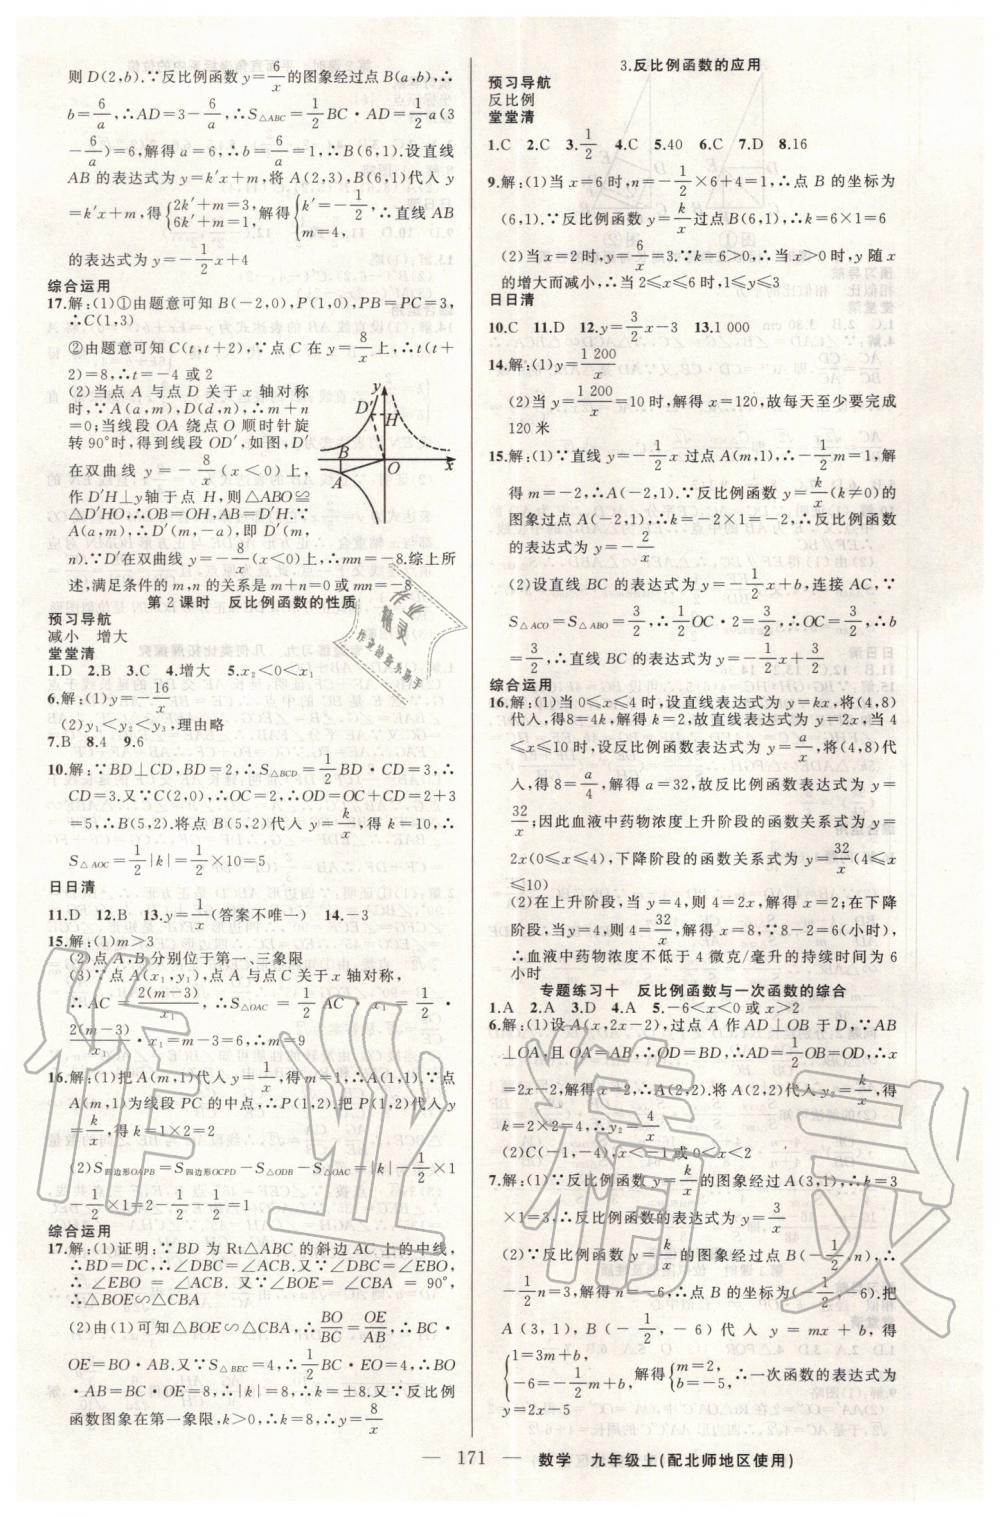 则D(2,b).∵反比例函数y=6/x的图象经过点B(a,b),∴
b=6/a,∴AD=3-6/a,∴S△ABC=1/2BC·AD=1/2a(3
-6/a)=6,解得a=6,∴b=6/a=1,∴B(6,1).设直线
AB的表达式为y=k′x+m,将A(2,3),B(6,1)代入y
=k′x+m,得{2k′+m=3, 6k′+m=1,解得{k′=-1/2, m=4,∴直线AB
的表达式为y=-1/2x+4
综合运用
17.解:(1)①由题意可知B(-2,0),P(1,0),PB=PC=3,
∴C(1,3)
②由题意可知C(t,t+2),∵点C在y=8/x上,∴t(t+
2)=8,∴t=-4或2
(2)当点A与点D关于x轴对称
时,∵A(a,m),D(d,n),∴m+n
=0;当线段OA绕点O顺时针旋
转90°时,得到线段OD′,如图,D′
在双曲线y=-8/x(x<0)上,
作D′H⊥y轴于点H,则△ABO≌
△D′HO,∴OB=OH,AB=D′H.∵
A(a,m),∴D′(m,-a),即D′(m,
n).∵D′在双曲线y=-8/x(x<0)上,∴mn=-8.综上所
述,满足条件的m,n的关系是m+n=0或mn=-8
y
D′
H
B
A
O
x
第2课时 反比例函数的性质
预习导航
减小 增大
堂堂清
1.D 2.B 3.C 4.增大 5.x₂<0<x₁
6.解:(1)y=-16/x
(2)y₁<y₂<y₃,理由略
7.B 8.4 9.6
10.解:∵BD⊥CD,BD=2,∴S△BCD=1/2BD·CD=3,∴
CD=3.又∵C(2,0),∴OC=2,∴OD=OC+CD=2+3
=5,∴B(5,2).将点B(5,2)代入y=k/x,得k=10,∴
S△AOC=1/2|k|=1/2×10=5
日日清
11.D 12.B 13.y=1/x(答案不唯一) 14.-3
15.解:(1)m>3
(2)点A,B分别位于第一、三象限
(3)∵点A(x₁,y₁),点A与点C关于x轴对称,
∴AC=2(m-3)/x₁,∴S△OAC=1/2AC·x₁=1/2·
2(m-3)/x₁·x₁=m-3=6,∴m=9
16.解:(1)把A(m,1)代入y=1/x,得m=1,∴A(1,1).∵点
A(m,1)为线段PC的中点,∴P(1,2).把P(1,2)代入y
=k/x,得k=1×2=2
(2)S四边形OAPB=S四边形OCPD-S△ODB-S△OAC=|k|-1/2×1
-1/2×1=2-1/2-1/2=1
综合运用
17.解:(1)证明:∵BD为Rt△ABC的斜边AC上的中线,
∴BD=DC,∴∠DBC=∠ACB.又∵∠DBC=∠EBO,
∴∠EBO=∠ACB.又∵∠BOE=∠CBA=90°,
∴△BOE∽△CBA
(2)由(1)可知△BOE∽△CBA,∴BO/BC=OE/AB,∴BC·
OE=BO·AB.又∵S△BEC=4,∴1/2BC·EO=4,∴BO
·AB=BC·OE=8,∴|k|=8,∴k=±8.又∵反比例
函数图象在第一象限,k>0,∴k=8,∴y=8/x
3.反比例函数的应用
预习导航
反比例
堂堂清
1.C 2.C 3.1/2 4.C 5.40 6.C 7.D 8.16
9.解:(1)当x=6时,n=-1/2×6+4=1,∴点B的坐标为
(6,1).∵反比例函数y=k/x过点B(6,1),∴k=6×1=6
(2)当x=2时,y=6/2=3.∵k=6>0,∴当x>0时,y随x
的增大而减小,∴当2≤x≤6时,1≤y≤3
日日清
10.C 11.D 12.y=3/2x-3 13.1 000
14.解:(1)y=1 200/x
(2)当y=1 200/x=10时,解得x=120,故每天至少要完成
120米
15.解:(1)∵直线y=-1/2x过点A(m,1),∴-1/2m=1,解
得m=-2,∴A(-2,1).∵反比例函数y=k/x(k≠0)的
图象过点A(-2,1),∴k=-2×1=-2,∴反比例函数
的表达式为y=-2/x
(2)设直线BC的表达式为y=-1/2x+b,连接AC,∵
S△ACO=S△ABO=3/2,∴1/2OC·2=3/2,∴OC=3/2,∴b=
3/2,∴直线BC的表达式为y=-1/2x+3/2
综合运用
16.解:(1)当0≤x≤4时,设直线表达式为y=kx,将(4,8)
代入,得8=4k,解得k=2,故直线表达式为y=2x,当4
≤x≤10时,设反比例函数表达式为y=a/x,将(4,8)代
入,得8=a/4,解得a=32,故反比例函数表达式为y=
32/x;因此血液中药物浓度上升阶段的函数关系式为y=
2x(0≤x≤4),下降阶段的函数关系式为y=32/x(4≤x
≤10)
(2)在上升阶段,当y=4,则4=2x,解得x=2;在下降
阶段,当y=4,则4=32/x,解得x=8,∵8-2=6(小时),
∴血液中药物浓度不低于4微克/毫升的持续时间为6
小时
专题练习十 反比例函数与一次函数的综合
1.A 2.A 3.D 4.A 5.-6<x<0或x>2
6.解:(1)设A(x,2x-2),过点A作AD⊥OB于D,∵AB
⊥OA,且OA=AB,∴OD=BD,∴AD=1/2OB=OD,∴x=
2x-2,解得x=2,∴A(2,2).将A(2,2)代入y₂=k/x,得
k=2×2=4,∴y₂=4/x
(2)C(-1,-4),x<-1或0<x<2
7.解:(1)∵反比例函数y=k/x的图象过点A(3,1),∴k=3
×1=3,∴反比例函数的表达式为y=3/x
(2)∵反比例函数y=k/x的图象经过点B(-1/2,n),∴
-1/2n=3,解得n=-6,∴点B的坐标为(-1/2,-6).把
A(3,1),B(-1/2,-6)代入y=mx+b,得
{1=3m+b, -6=-1/2m+b,解得{m=2, b=-5,∴一次函数的表达式为
y=2x-5
— 171 — 数学 九年级上(配北师地区使用)
作业精灵
作业
精灵